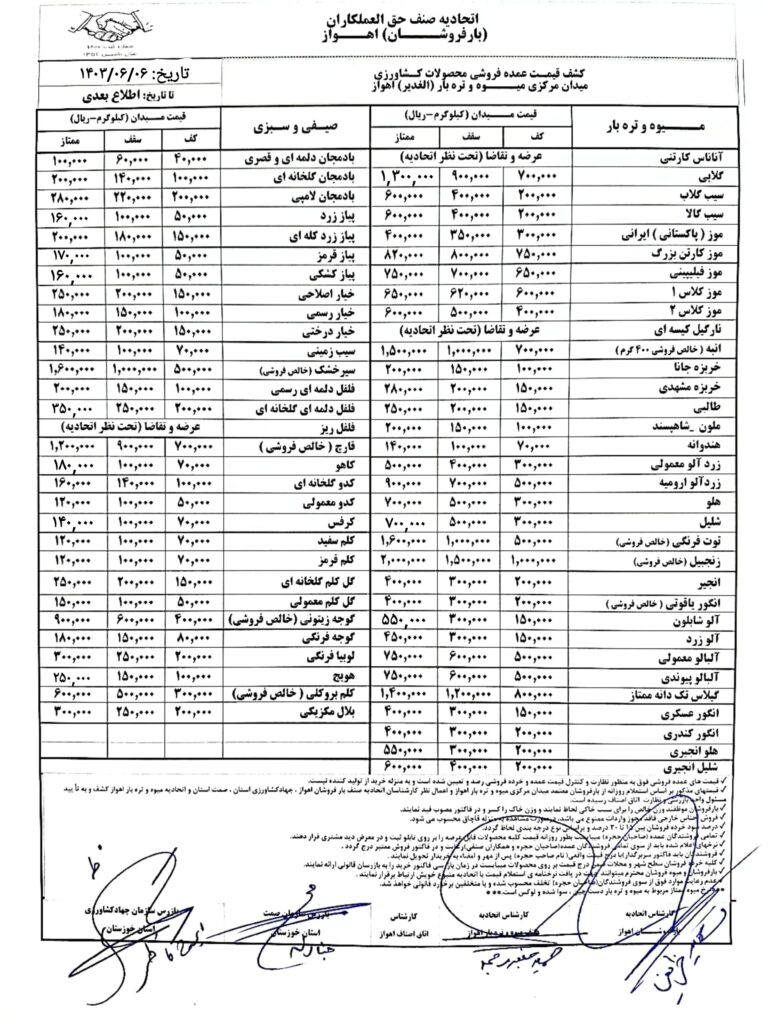 اتحادیه صنف حق العملکاران
(بارفروشـــــان) اهـواز
شماره ثبت ۱۶۰۰
تاریخ: ۱۴۰۳/۰۶/۰۶
تا تاریخ: اطلاع بعدی
کشف قیمت عمده فروشی محصولات کـشاورزی
میدان مرکزی میـوه و تره بار (الغدیر) اهواز
میـــوه و تره بار
قیمت میــدان (کیلوگرم-ریال)
کف سقف ممتاز
آناناس کارتنی عرضه و تقاضا (تحت نظر اتحادیه)
گلابی ۷۰۰,۰۰۰ ۹۰۰,۰۰۰ ۱,۳۰۰,۰۰۰
سیب گلاب ۲۰۰,۰۰۰ ۴۰۰,۰۰۰ ۶۰۰,۰۰۰
سیب گالا ۲۰۰,۰۰۰ ۴۰۰,۰۰۰ ۶۰۰,۰۰۰
موز ( پاکستانی ) ایرانی ۳۰۰,۰۰۰ ۳۵۰,۰۰۰ ۴۰۰,۰۰۰
موز کارتن بزرگ ۷۵۰,۰۰۰ ۸۰۰,۰۰۰ ۸۲۰,۰۰۰
موز فیلیپینی ۶۵۰,۰۰۰ ۷۰۰,۰۰۰ ۷۵۰,۰۰۰
موز کلاس ۱ ۶۰۰,۰۰۰ ۶۲۰,۰۰۰ ۶۵۰,۰۰۰
موز کلاس ۲ ۴۰۰,۰۰۰ ۵۰۰,۰۰۰ ۶۰۰,۰۰۰
نارگیل کیسه ای عرضه و تقاضا (تحت نظر اتحادیه)
انبه ( خالص فروشی ۴۰۰ گرم ) ۷۰۰,۰۰۰ ۱,۰۰۰,۰۰۰ ۱,۵۰۰,۰۰۰
خربزه جانا ۱۰۰,۰۰۰ ۱۵۰,۰۰۰ ۲۰۰,۰۰۰
خربزه مشهدی ۱۵۰,۰۰۰ ۲۰۰,۰۰۰ ۲۸۰,۰۰۰
طالبی ۱۵۰,۰۰۰ ۲۰۰,۰۰۰ ۲۵۰,۰۰۰
ملون _شاهپسند ۱۰۰,۰۰۰ ۱۵۰,۰۰۰ ۲۰۰,۰۰۰
هندوانه ۷۰,۰۰۰ ۱۰۰,۰۰۰ ۱۴۰,۰۰۰
زرد آلو معمولی ۳۰۰,۰۰۰ ۴۰۰,۰۰۰ ۵۰۰,۰۰۰
زردآلو ارومیه ۵۰۰,۰۰۰ ۷۰۰,۰۰۰ ۹۰۰,۰۰۰
هلو ۳۰۰,۰۰۰ ۵۰۰,۰۰۰ ۷۰۰,۰۰۰
شلیل ۳۰۰,۰۰۰ ۵۰۰,۰۰۰ ۷۰۰,۰۰۰
توت فرنگی (خالص فروشی) ۵۰۰,۰۰۰ ۱,۰۰۰,۰۰۰ ۱,۶۰۰,۰۰۰
زنجبیل (خالص فروشی) ۱,۰۰۰,۰۰۰ ۱,۵۰۰,۰۰۰ ۲,۰۰۰,۰۰۰
انجیر ۲۰۰,۰۰۰ ۳۰۰,۰۰۰ ۴۰۰,۰۰۰
انگور یاقوتی ( خالص فروشی ) ۲۰۰,۰۰۰ ۳۰۰,۰۰۰ ۴۰۰,۰۰۰
آلو شابلون ۱۵۰,۰۰۰ ۳۰۰,۰۰۰ ۵۵۰,۰۰۰
آلو زرد ۱۵۰,۰۰۰ ۳۰۰,۰۰۰ ۴۵۰,۰۰۰
آلبالو معمولی ۵۰۰,۰۰۰ ۶۰۰,۰۰۰ ۷۵۰,۰۰۰
آلبالو پیوندی ۵۰۰,۰۰۰ ۶۰۰,۰۰۰ ۷۵۰,۰۰۰
گیلاس تک دانه ممتاز ۸۰۰,۰۰۰ ۱,۲۰۰,۰۰۰ ۱,۴۰۰,۰۰۰
انگور عسکری ۱۵۰,۰۰۰ ۳۰۰,۰۰۰ ۴۰۰,۰۰۰
انگور کندری ۲۰۰,۰۰۰ ۳۰۰,۰۰۰ ۴۰۰,۰۰۰
هلو انجیری ۲۰۰,۰۰۰ ۳۰۰,۰۰۰ ۵۵۰,۰۰۰
شلیل انجیری ۲۰۰,۰۰۰ ۴۰۰,۰۰۰ ۶۰۰,۰۰۰
صیفی و سبزی
قیمت میـدان (کیلوگرم-ریال)
کف سقف ممتاز
بادمجان دلمه ای و قصری ۴۰,۰۰۰ ۶۰,۰۰۰ ۱۰۰,۰۰۰
بادمجان گلخانه ای ۱۰۰,۰۰۰ ۱۴۰,۰۰۰ ۲۰۰,۰۰۰
بادمجان لامپی ۲۰۰,۰۰۰ ۲۲۰,۰۰۰ ۲۸۰,۰۰۰
پیاز زرد ۵۰,۰۰۰ ۱۰۰,۰۰۰ ۱۶۰,۰۰۰
پیاز زرد کله ای ۱۵۰,۰۰۰ ۱۸۰,۰۰۰ ۲۰۰,۰۰۰
پیاز قرمز ۵۰,۰۰۰ ۱۰۰,۰۰۰ ۱۷۰,۰۰۰
پیاز کشکی ۵۰,۰۰۰ ۱۰۰,۰۰۰ ۱۶۰,۰۰۰
خیار اصلاحی ۱۵۰,۰۰۰ ۲۰۰,۰۰۰ ۲۵۰,۰۰۰
خیار رسمی ۱۰۰,۰۰۰ ۱۵۰,۰۰۰ ۱۸۰,۰۰۰
خیار درختی ۱۵۰,۰۰۰ ۲۰۰,۰۰۰ ۲۵۰,۰۰۰
سیب زمینی ۷۰,۰۰۰ ۱۰۰,۰۰۰ ۱۴۰,۰۰۰
سیرخشک (خالص فروشی) ۵۰۰,۰۰۰ ۱,۰۰۰,۰۰۰ ۱,۶۰۰,۰۰۰
فلفل دلمه ای رسمی ۱۰۰,۰۰۰ ۱۵۰,۰۰۰ ۲۰۰,۰۰۰
فلفل دلمه ای گلخانه ای ۲۰۰,۰۰۰ ۲۵۰,۰۰۰ ۳۵۰,۰۰۰
فلفل ریز عرضه و تقاضا (تحت نظر اتحادیه)
قارچ ( خالص فروشی ) ۷۰۰,۰۰۰ ۹۰۰,۰۰۰ ۱,۲۰۰,۰۰۰
کاهو ۷۰,۰۰۰ ۱۰۰,۰۰۰ ۱۸۰,۰۰۰
کدو گلخانه ای ۱۰۰,۰۰۰ ۱۴۰,۰۰۰ ۱۶۰,۰۰۰
کدو معمولی ۵۰,۰۰۰ ۱۰۰,۰۰۰ ۱۲۰,۰۰۰
کرفس ۷۰,۰۰۰ ۱۰۰,۰۰۰ ۱۴۰,۰۰۰
کلم سفید ۷۰,۰۰۰ ۱۰۰,۰۰۰ ۱۲۰,۰۰۰
کلم قرمز ۷۰,۰۰۰ ۱۰۰,۰۰۰ ۱۲۰,۰۰۰
گل کلم گلخانه ای ۱۵۰,۰۰۰ ۲۰۰,۰۰۰ ۲۵۰,۰۰۰
گل کلم معمولی ۵۰,۰۰۰ ۱۰۰,۰۰۰ ۱۵۰,۰۰۰
گوجه زیتونی (خالص فروشی) ۴۰۰,۰۰۰ ۶۰۰,۰۰۰ ۹۰۰,۰۰۰
گوجه فرنگی ۸۰,۰۰۰ ۱۵۰,۰۰۰ ۱۸۰,۰۰۰
لوبیا فرنگی ۲۰۰,۰۰۰ ۲۵۰,۰۰۰ ۳۰۰,۰۰۰
هویج ۱۰۰,۰۰۰ ۱۵۰,۰۰۰ ۲۵۰,۰۰۰
کلم بروکلی ( خالص فروشی) ۳۰۰,۰۰۰ ۵۰۰,۰۰۰ ۶۰۰,۰۰۰
بلال مکزیکی ۲۰۰,۰۰۰ ۲۵۰,۰۰۰ ۳۰۰,۰۰۰
قیمت های عمده فروشی فوق به منظور نظارت و کنترل قیمت عمده و خرده فروشی رصد و تعیین شده است و به منزله خرید از تولید کننده نیست.
قیمتهای مذکور بر اساس استعلام روزانه از بارفروشان معتمد میدان مرکزی میوه و تره بار اهواز و اعمال نظر کارشناسان اتحادیه صنف بار فروشان اهواز ، جهادکشاورزی استان ، صمت استان و اتحادیه میوه و تره بار اهواز کشف و به تأیید
مسئول واحد بازرسی و نظارت اتاق اصناف رسیده است.
بارفروشان موظفند وزن خالص را برای سبب خاکی لحاظ نمایند و وزن خاک را کسر و در فاکتور مصوب قید نمایند.
فروش اجناس خارجی فاقد مجوز واردات ممنوع می باشد، درصورت مشاهده به منزله قاچاق محسوب می شود.
درصد سود خرده فروشان بین ۱۵ تا ۳۰ درصد و براساس نوع درجه بندی لحاظ گردد.
کارشناس اتحادیه
بارفروشان اهواز
کارشناس اتحادیه
صنف میوه و تره بار اهواز
کارشناس
اتاق اصناف اهواز
بازرس سازمان صمت
استان خوزستان
بازرس سازمان جهادکشاورزی
استان خوزستان